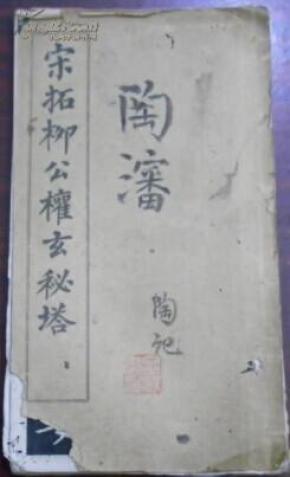 宋拓柳公權玄秘塔
陶瀋
陶記